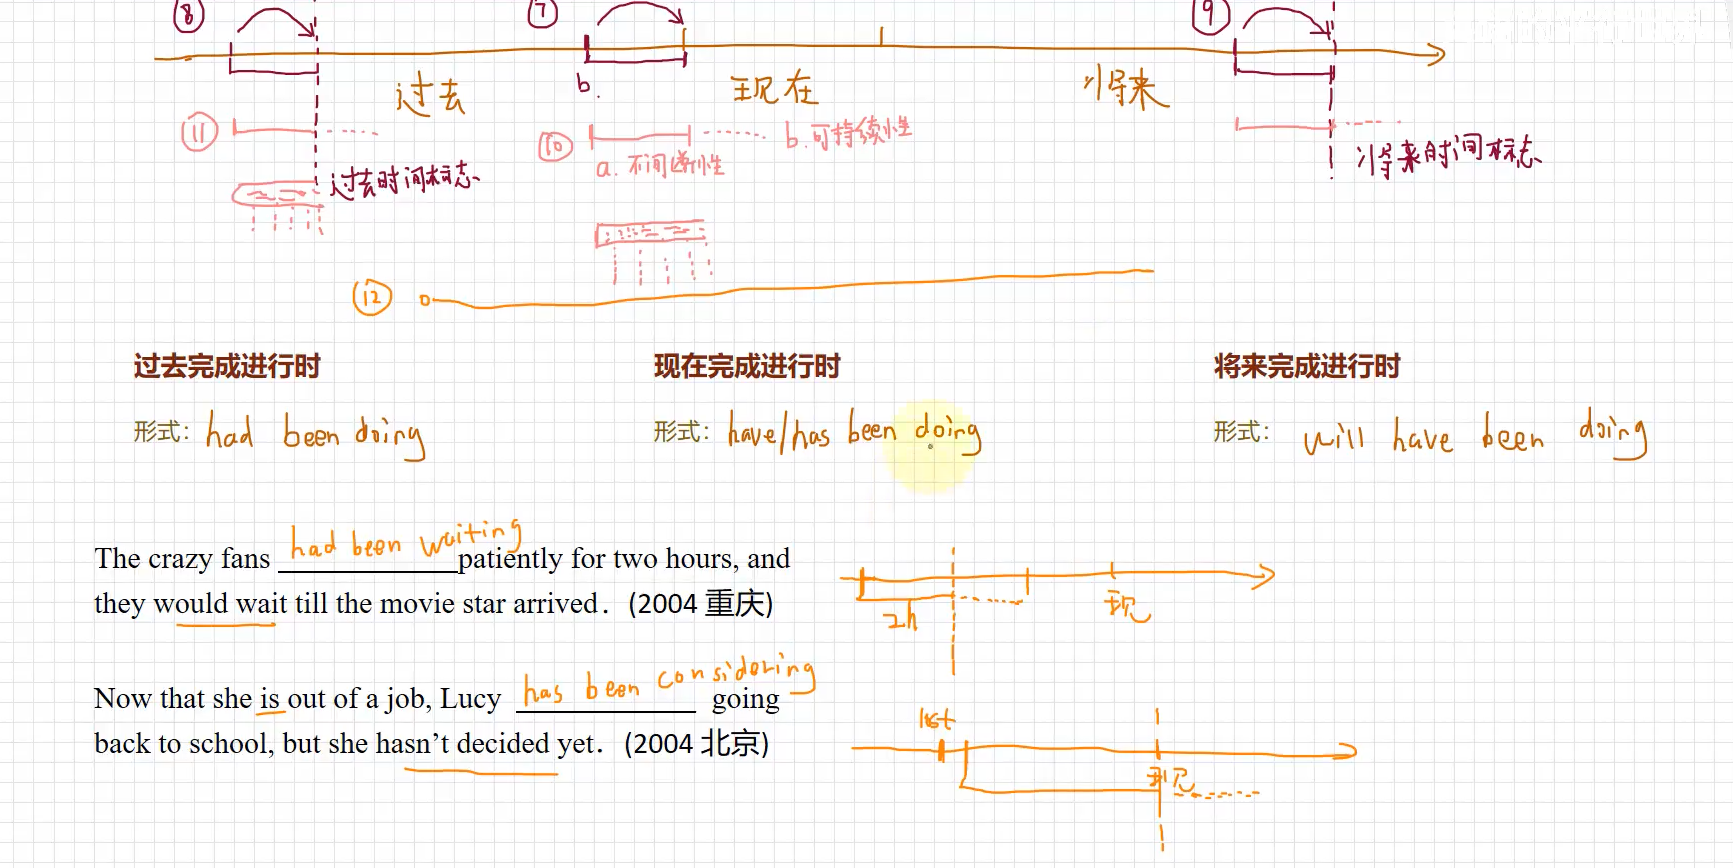 ⑧ ⑦ ⑨
b.
过去 现在 将来
⑪ ⑩ b.可持续性
a.不间断性
过去时间标志 将来时间标志
⑫
过去完成进行时 现在完成进行时 将来完成进行时
形式：had been doing 形式：have/has been doing 形式：will have been doing
The crazy fans had been waiting patiently for two hours, and
they would wait till the movie star arrived．(2004 重庆)
2h 现
Now that she is out of a job, Lucy has been considering going
back to school, but she hasn't decided yet．(2004 北京)
lost
现